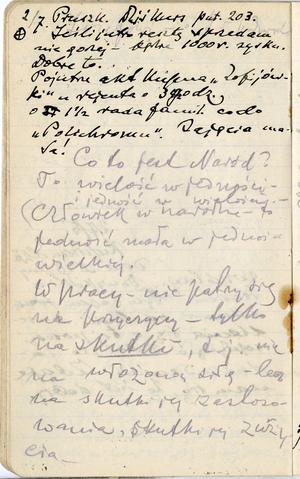 2/7. Pruszk. Dziś kurs put. 203.
Jeśli jutro resztę sprzedam
nie gorzej – będzie 1000 r. zysku.
Dobre to.
Pojutrze akt kupna „Zofijów-
ki” u rejenta o 3 godz.
o 1½ rada famil. co do
„Polychromu”. Zajęcia ma-
sa!
Co to jest Naród?
To wielość w jedności –
i jedność w wielości. –
Człowiek w narodzie – to
jedność mała w jedności
wielkiej.
W pracy – nie patrz się
na przyczyny – tylko
na skutki, t. j. nie
na włożoną siłę – lecz
na skutki jej zastoso-
wania, skutki jej zuży-
cia –